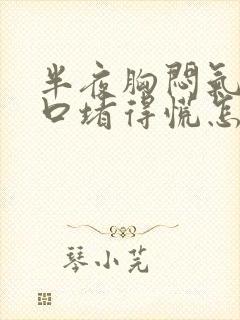 半夜胸闷氣
口堵得慌怎
琴小芫